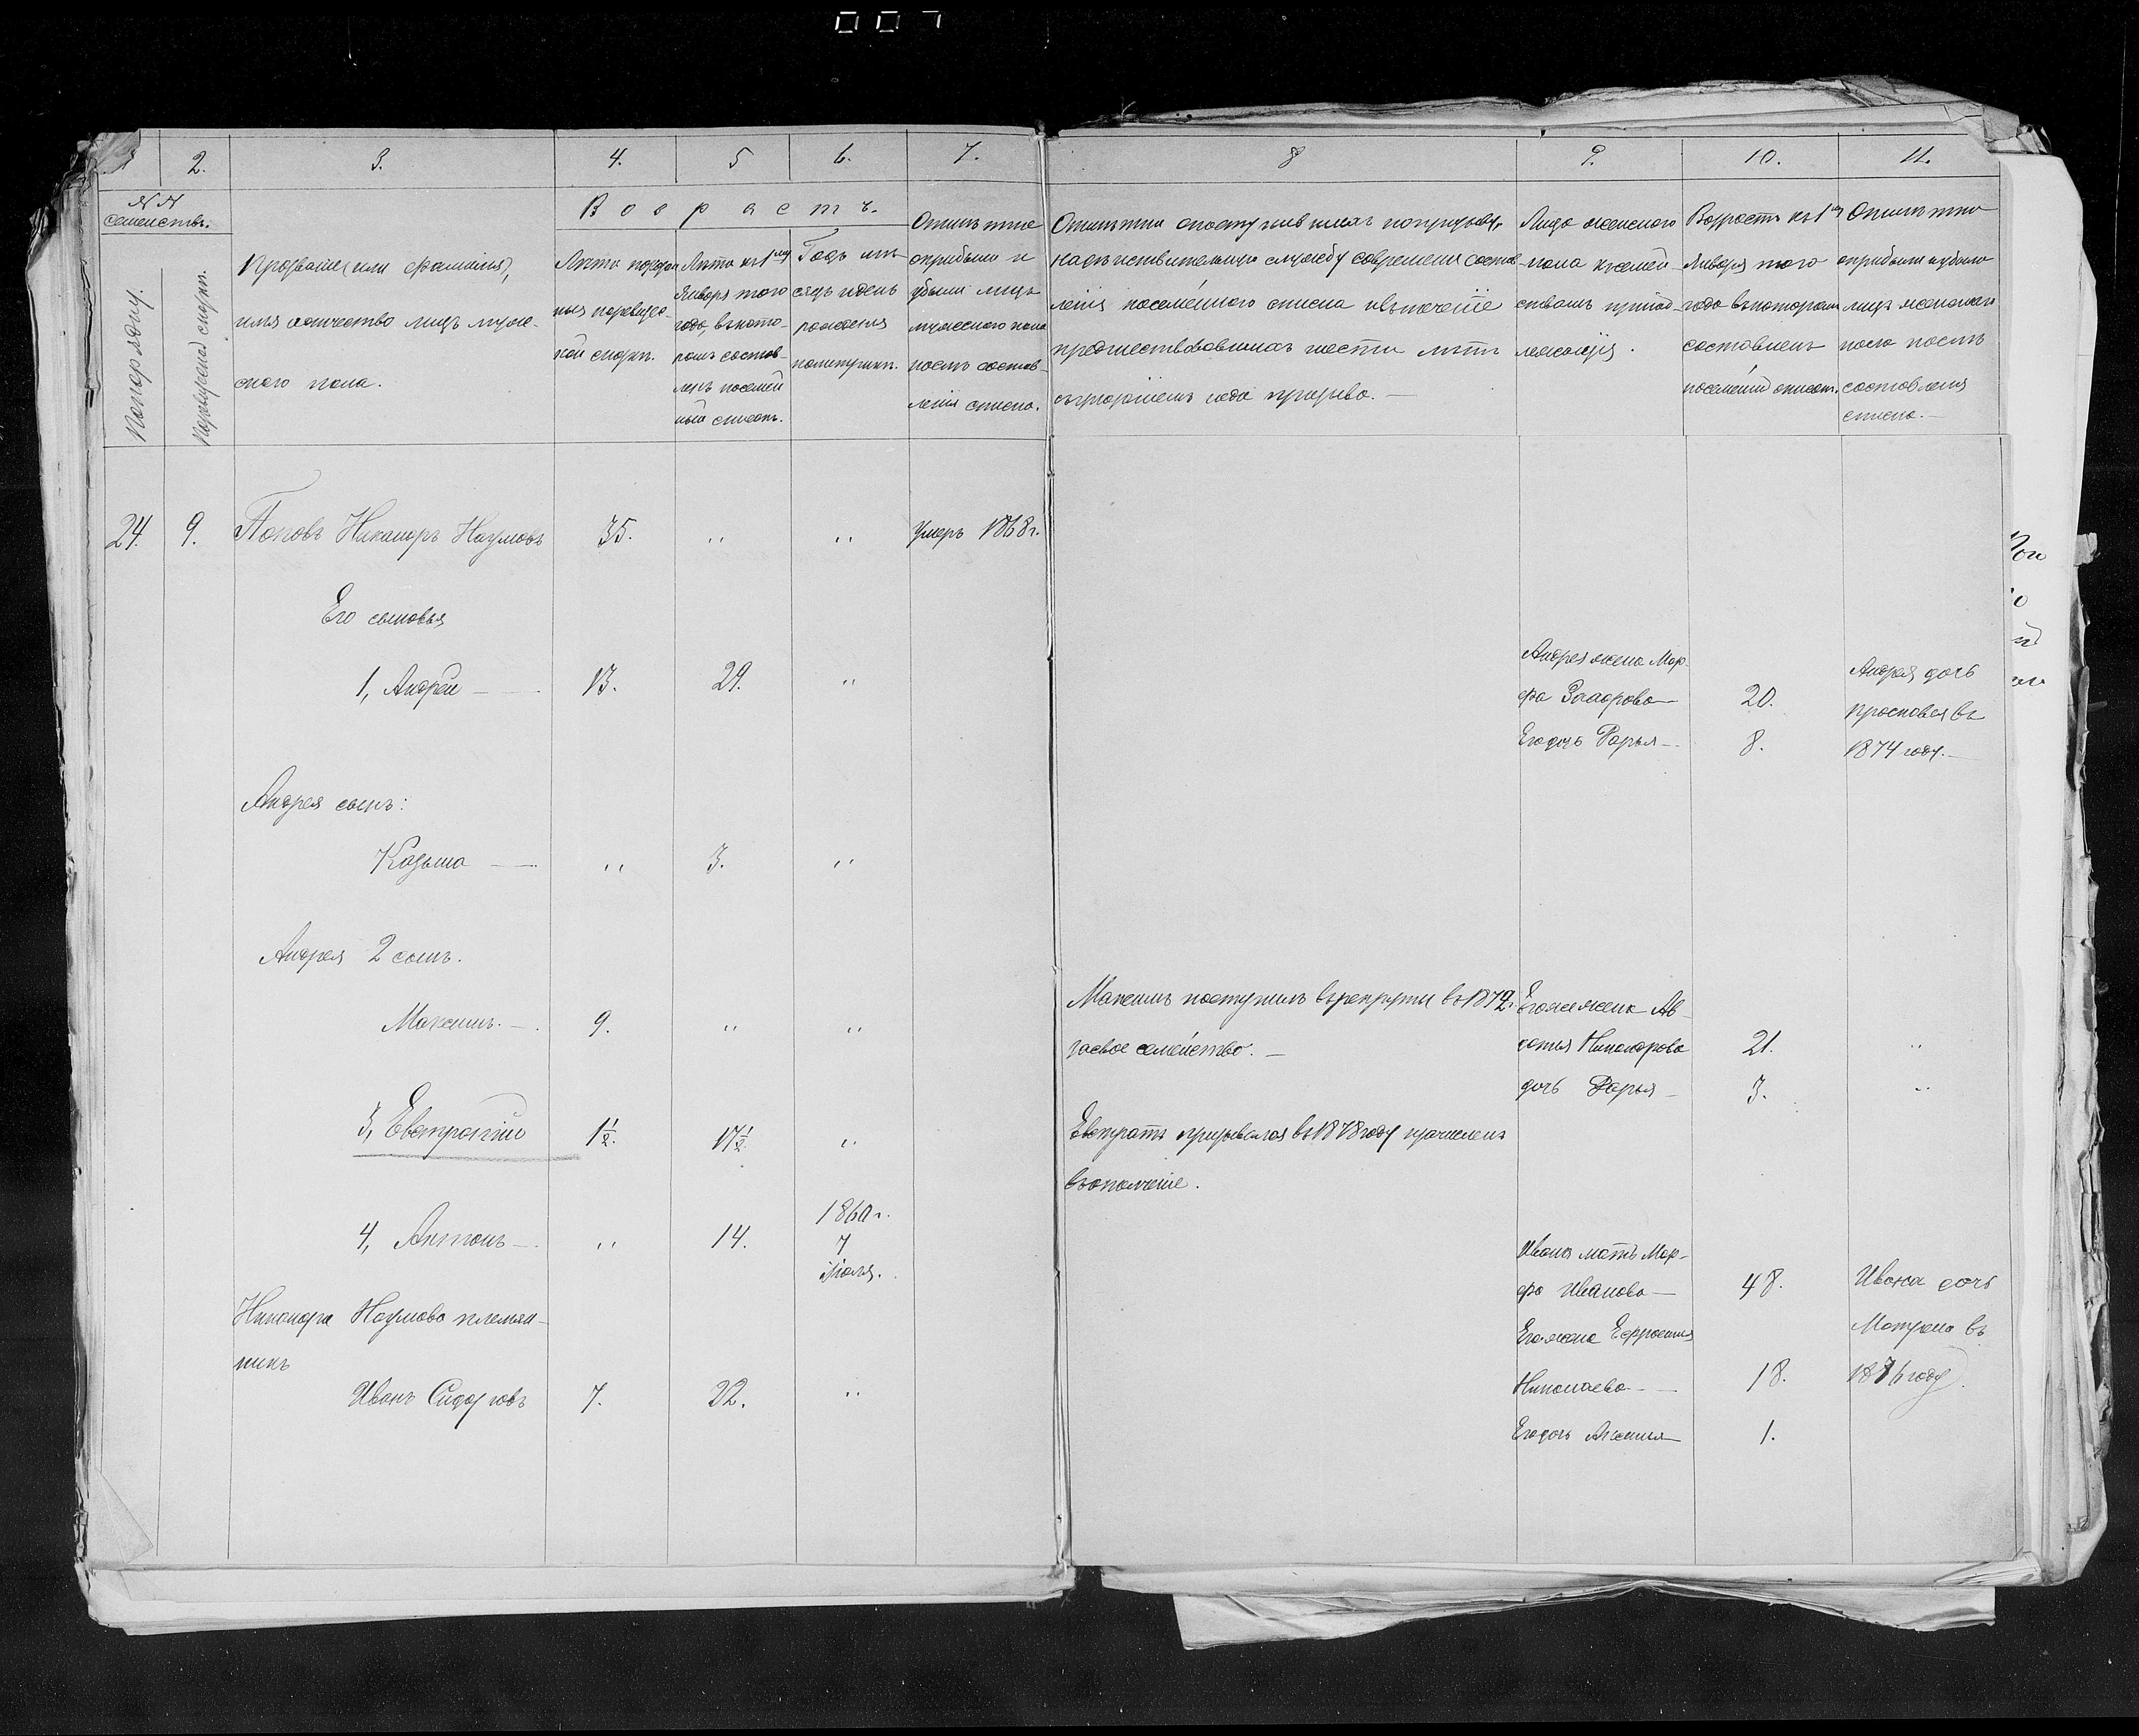 007
1 2. 3. 4. 5 6. 7. 8 9. 10. 11.
№ №
семействъ.
По порядку.
По ревизской сказкѣ.
Прозваніе (или фамилія),
имя и отчество лицъ муже-
скаго пола.
Возрастъ.
Лѣта по реви-
ской сказкѣ.
Лѣта къ 1му
Января того
года, въ кото-
ромъ состав-
ленъ посемей
ный списокъ.
Годъ мѣ-
сяцъ и день
рожденія
по метрикѣ.
Отмѣтка
о прибыли и
убыли лицъ
мужескаго пола
послѣ состав-
ленія списка.
Отмѣтки о поступившихъ по призыву,
на дѣйствительную службу со времени состав-
ленія посемейнаго списка и въ теченіе
предшествовавшихъ шести лѣтъ
съ указаніемъ года призыва. —
Лица женскаго
пола къ семей-
ствамъ принад-
лежащія.
Возрастъ къ 1му
Января того
года въ которомъ
составленъ
посемейный списокъ.
Отмѣтка
о прибыли и убыли
лицъ женскаго
пола послѣ
составленія
списка. —
24. 9. Поповъ Никаноръ Наумовъ 35. " " умеръ 1868 г.
Его сыновья
1, Андрей — 13. 29. "
Андрея жена Мар-
фа Захарова — 20.
Его дочь Дарья — 8.
Андрея дочь
Просковья въ
1874 году. —
Андрея сынъ:
Козьма — " 3. "
Андрея 2 сынъ.
Максимъ. — 9. " "
Максимъ поступилъ въ рекруты въ 1872 г.
за свое семейство. —
Его же жена Ав-
дотья Никанорова 21. "
дочь Дарья — 3. "
3, Евстратій 1½. 17½. "
Евстратъ призывался въ 1878 году зачисленъ
въ ополченіе.
4, Антонъ — " 14. 1860 г.
7
Іюля.
Никанора Наумова племян-
никъ
Иванъ Сидоровъ 7. 22. "
Ивана мать Мар-
фа Иванова — 48.
Его жена Ефросинья
Николаева — 18.
Его дочь Аксинья — 1.
Ивана дочь
Матрена въ
1876 году.